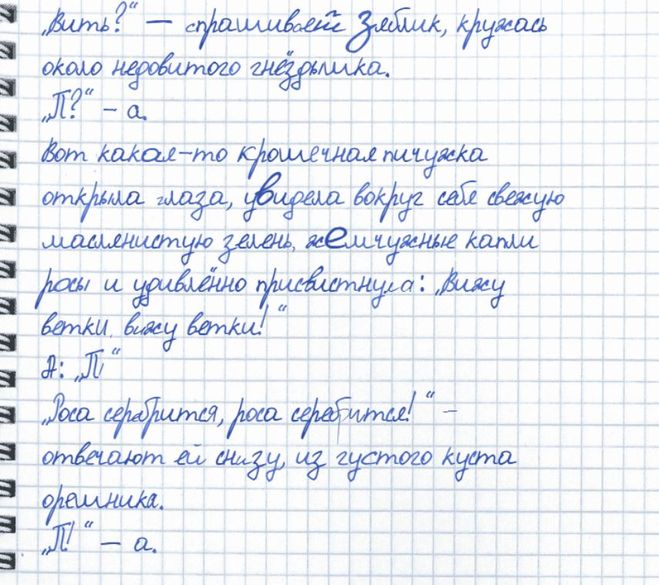 „Вить?“ — спрашивает зяблик, кружась
около недовитого гнёздышка.
„П?“ – а.
Вот какая-то крошечная пичужка
открыла глаза, увидела вокруг себя свежую
маслянистую зелень, жемчужные капли
росы и удивлённо присвистнула: „Вижу
ветки, вижу ветки!“
А: „П!“
„Роса серебрится, роса серебрится!“ –
отвечают ей снизу, из густого куста
орешника.
„П!“ – а.